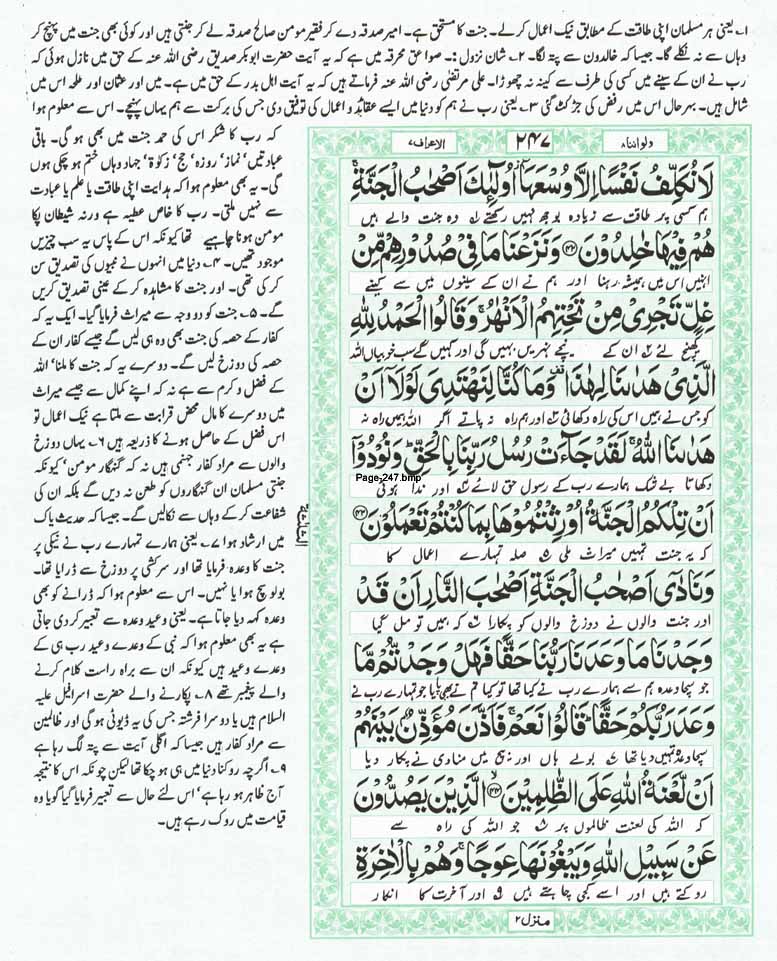 ۱۔ یعنی ہر مسلمان اپنی طاقت کے مطابق نیک اعمال کرلے۔ جنت کا مستحق ہے۔ امیر صدقہ دے کر فقیر مومن صالح صدقہ لے کر جنتی ہیں اور کوئی بھی جنت میں پہنچ کر
وہاں سے نہ نکلے گا۔ جیسا کہ خالدون سے پتہ لگا۔ ۲۔ شان نزول :۔ صواعق محرقہ میں ہے کہ یہ آیت حضرت ابوبکر صدیق رضی اللہ عنہ کے حق میں نازل ہوئی کہ
رب نے ان کے سینے میں کسی کی طرف سے کینہ نہ چھوڑا۔ علی مرتضیٰ رضی اللہ عنہ فرماتے ہیں کہ یہ آیت اہل بدر کے حق میں ہے۔ میں اور عثمان اور طلحہ اس میں
شامل ہیں۔ بہرحال اس میں رفض کی جڑ کٹ گئی ۳۔ یعنی رب نے ہم کو دنیا میں ایسے عقائد و اعمال کی توفیق دی جس کی برکت سے ہم یہاں پہنچے۔ اس سے معلوم ہوا
کہ رب کا شکر اس کی حمد جنت میں بھی ہو گی۔ باقی
عبادتیں' نماز' روزہ' حج' زکوٰۃ' جہاد وہاں ختم ہو چکی ہوں
گی۔ یہ بھی معلوم ہوا کہ ہدایت اپنی طاقت یا علم یا عبادت
سے نہیں ملتی۔ رب کا خاص عطیہ ہے ورنہ شیطان پکا
مومن ہونا چاہیے تھا کیونکہ اس کے پاس یہ سب چیزیں
موجود تھیں۔ ۴۔ دنیا میں انہوں نے نبیوں کی تصدیق سن
کر کی تھی۔ اور جنت کا مشاہدہ کر کے عینی تصدیق کریں
گے۔ ۵۔ جنت کو دو وجہ سے میراث فرمایا گیا۔ ایک یہ کہ
کفار کے حصہ کی جنت بھی وہ ہی لیں گے جیسے کفار ان کے
حصہ کی دوزخ لیں گے۔ دوسرے یہ کہ جنت کا ملنا' اللہ
کے فضل و کرم سے ہے نہ کہ اپنے کمال سے جیسے میراث
میں دوسرے کا مال محض قرابت سے ملتا ہے نیک اعمال تو
اس فضل کے حاصل ہونے کا ذریعہ ہیں ۶۔ یہاں دوزخ
والوں سے مراد کفار جہنمی ہیں نہ کہ گنہگار مومن' کیونکہ
جنتی مسلمان ان گنہگاروں کو طعن نہ دیں گے بلکہ ان کی
شفاعت کر کے وہاں سے نکالیں گے۔ جیسا کہ حدیث پاک
میں ارشاد ہوا ۷۔ یعنی ہمارے تمہارے رب نے نیکی پر
جنت کا وعدہ فرمایا تھا اور سرکشی پر دوزخ سے ڈرایا تھا۔
بولو سچ ہوا یا نہیں۔ اس سے معلوم ہوا کہ ڈرانے کو بھی
وعدہ کہہ دیا جاتا ہے۔ یعنی وعید وعدہ سے تعبیر کر دی جاتی
ہے یہ بھی معلوم ہوا کہ نبی کے وعدے وعید رب ہی کے
وعدے وعید ہیں کیونکہ ان سے براہ راست کلام کرنے
والے پیغمبر تھے ۸۔ پکارنے والے حضرت اسرافیل علیہ
السلام ہیں یا دوسرا فرشتہ جس کی یہ ڈیوٹی ہو گی اور ظالمین
سے مراد کفار ہیں جیسا کہ اگلی آیت سے پتہ لگ رہا ہے
۹۔ اگرچہ روکنا دنیا میں ہی ہو چکا تھا لیکن چونکہ اس کا نتیجہ
آج ظاہر ہو رہا ہے' اس لئے حال سے تعبیر فرمایا گیا گویا وہ
قیامت میں روک رہے ہیں۔
ولواننا۸ ۲۴۷ الاعراف۷
لَا نُكَلِّفُ نَفْسًا اِلَّا وُسْعَهَاۤ اُولٰٓئِكَ اَصْحٰبُ الْجَنَّةِۚ
ہم کسی پر طاقت سے زیادہ بوجھ نہیں رکھتے ۱ وہ جنت والے ہیں
هُمْ فِيْهَا خٰلِدُوْنَ۝۴۲ وَنَزَعْنَا مَا فِيْ صُدُوْرِهِمْ مِّنْ
انہیں اس میں ہمیشہ رہنا اور ہم نے ان کے سینوں میں سے کینے
غِلٍّ تَجْرِيْ مِنْ تَحْتِهِمُ الْاَنْهٰرُۚ وَقَالُوا الْحَمْدُ لِلّٰهِ
کھینچ لئے ۲ ان کے نیچے نہریں بہیں گی اور کہیں گے سب خوبیاں اللہ
الَّذِيْ هَدٰىنَا لِهٰذَا۫ وَمَا كُنَّا لِنَهْتَدِيَ لَوْلَاۤ اَنْ
کو جس نے ہمیں اس کی راہ دکھائی ۳ اور ہم راہ نہ پاتے اگر اللہ ہمیں راہ نہ
هَدٰىنَا اللّٰهُۚ لَقَدْ جَآءَتْ رُسُلُ رَبِّنَا بِالْحَقِّؕ وَنُوْدُوْۤا
دکھاتا بے شک ہمارے رب کے رسول حق لائے ۴ اور ندا ہوئی
Page-247.bmp
اَنْ تِلْكُمُ الْجَنَّةُ اُوْرِثْتُمُوْهَا بِمَا كُنْتُمْ تَعْمَلُوْنَ۝۴۳
کہ یہ جنت تمہیں میراث ملی ۵ صلہ تمہارے اعمال کا
وَنَادٰٓى اَصْحٰبُ الْجَنَّةِ اَصْحٰبَ النَّارِ اَنْ قَدْ
اور جنت والوں نے دوزخ والوں کو پکارا ۶ کہ ہمیں تو مل گیا
وَجَدْنَا مَا وَعَدَنَا رَبُّنَا حَقًّا فَهَلْ وَجَدْتُّمْ مَّا
جو سچا وعدہ ہم سے ہمارے رب نے کیا تھا تو کیا تم نے بھی پایا جو تمہارے رب نے
وَعَدَ رَبُّكُمْ حَقًّاؕ قَالُوْا نَعَمْۚ فَاَذَّنَ مُؤَذِّنٌۢ بَيْنَهُمْ
سچا وعدہ تمہیں دیا تھا ۷ بولے ہاں اور بیچ میں منادی نے پکار دیا
اَنْ لَّعْنَةُ اللّٰهِ عَلَى الظّٰلِمِيْنَ۝۴۴ الَّذِيْنَ يَصُدُّوْنَ
کہ اللہ کی لعنت ظالموں پر ۸ جو اللہ کی راہ سے
عَنْ سَبِيْلِ اللّٰهِ وَيَبْغُوْنَهَا عِوَجًاۚ وَهُمْ بِالْاٰخِرَةِ
روکتے ہیں اور اسے کجی چاہتے ہیں ۹ اور آخرت کا انکار
منزل۲